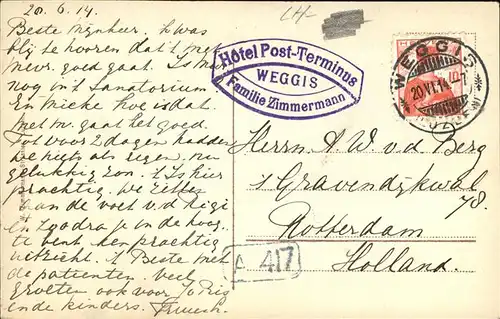 20.6.14.
Beste Mijnheer, 'k was
blij te hooren dat 't met
mevr. goed gaat. Is M.
nog in 't Sanatorium
En Mieke hoe is dat.
met m. gaat het goed.
Tot voor 2 dagen hadden
we niets als regen, nu
gelukkig zon. 't Is hier
prachtig. We zitten
aan de voet v.d. Rigi
en zoodra je in de hoog
te bent een prachtig
uitzicht. 't Beste met
de patienten. Veel
groeten ook voor Jo
en de kinders.
CH-
Hôtel Post-Terminus
WEGGIS
Familie Zimmermann
WEGGIS
20.VI.14
(LUZERN)
Herrn A. W. v.d. Berg
's Gravendijkwal
78.
Rotterdam
Holland.
A 417